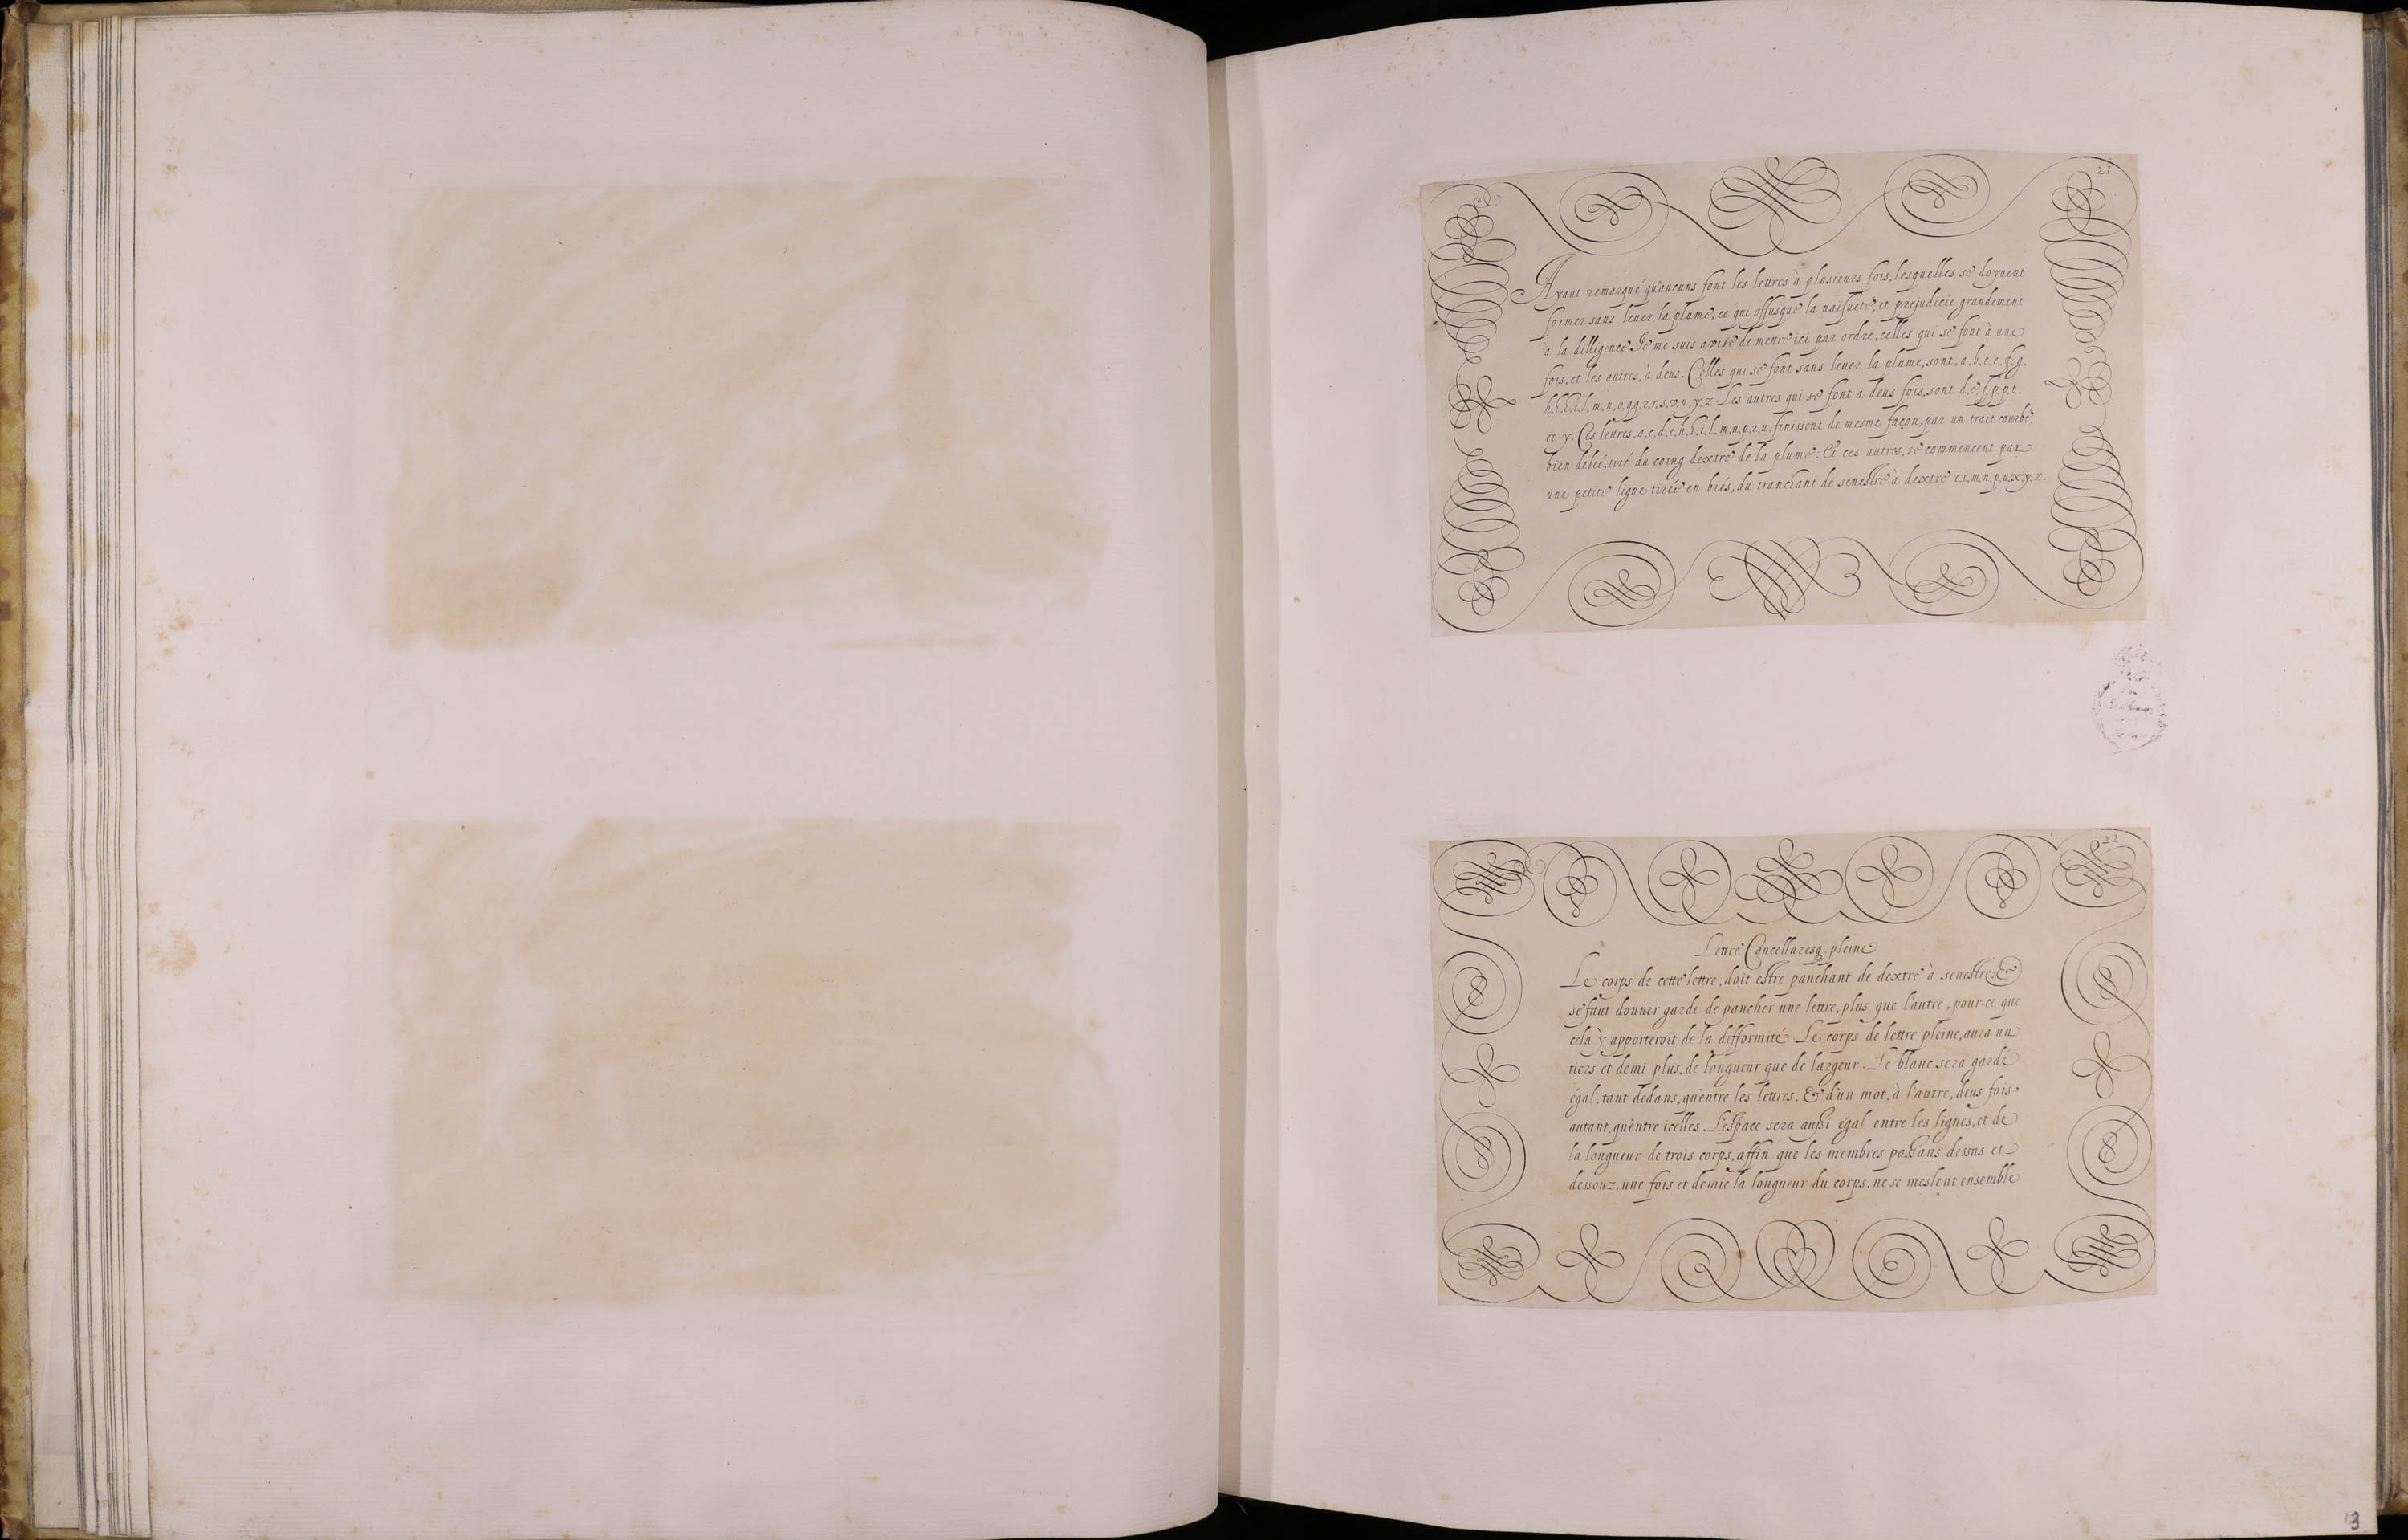 21
Ayant remarqué qu'aucuns font les lettres à plusieurs fois, lesquelles se doyuent
former sans leuer la plume, ce qui offusque la naïfueté, et prejudicie grandement
à la dilligence. Je me suis avisé de mettre ici par ordre, celles qui se font à une
fois, et les autres, à deus. Celles qui se font sans leuer la plume, sont. a, b, c, e, f, g.
h, h, h, i, l, m, n, o, q, q, r, s, s, v, u, y, z. Les autres qui se font a deus fois, sont d, e, f, p, p, t.
et y. Ces lettres, a, c, d, e, h, h, i, l, m, n, p, r, u. finissent de mesme façon, par un trait courbe,
bien delié, tiré du coing dextre de la plume: Et ces autres, se commencent par
une petite ligne tirée en biés, du tranchant de senestre à dextre i, i, m, n, p, u, x, y, z.
22
Lettre Cancellaresq. pleine
Le corps de cette lettre, doit estre panchant de dextre à senestre: &
se faut donner garde de pancher une lettre, plus que l'autre, pour-ce que
celà y apporteroit de la difformité. Le corps de lettre pleine, aura un
tiers et demi plus, de longueur que de largeur. Le blanc sera gardé
égal, tant dedans, qu'entre les lettres. & d'un mot, à l'autre, deus fois
autant, qu'entre icelles. L'espace sera aussi égal entre les lignes, et de
la longueur de trois corps, affin que les membres passans dessus et
dessouz, une fois et demie la longueur du corps, ne se meslent ensemble
13